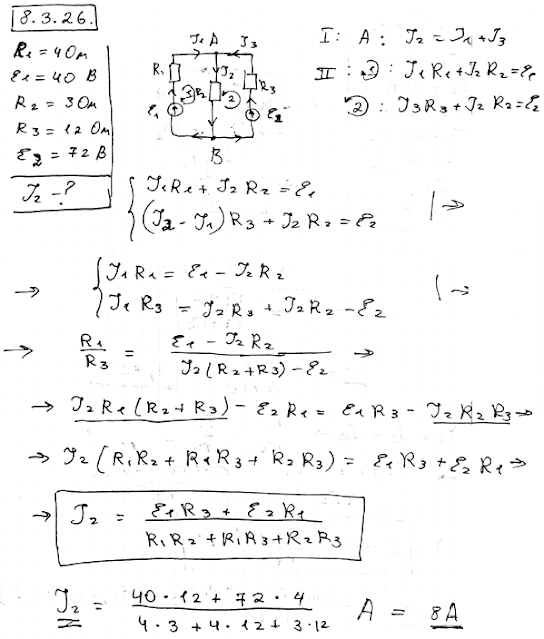 8.3.26.
R₁ = 4 Ом
ℰ₁ = 40 В
R₂ = 3 Ом
R₃ = 12 Ом
ℰ₂ = 72 В
J₂ - ?
J₁ A J₃
R₁ J₂ R₃
ℰ₁ 1 R₂ 2 ℰ₂
B
I: A: J₂ = J₁ + J₃
II: 1: J₁R₁ + J₂R₂ = ℰ₁
2: J₃R₃ + J₂R₂ = ℰ₂
{ J₁R₁ + J₂R₂ = ℰ₁
(J₂ - J₁)R₃ + J₂R₂ = ℰ₂ | ⇒
→ { J₁R₁ = ℰ₁ - J₂R₂
J₁R₃ = J₂R₃ + J₂R₂ - ℰ₂ | ⇒
→ R₁/R₃ = (ℰ₁ - J₂R₂)/(J₂(R₂+R₃) - ℰ₂) ⇒
→ J₂R₁(R₂+R₃) - ℰ₂R₁ = ℰ₁R₃ - J₂R₂R₃ ⇒
→ J₂(R₁R₂ + R₁R₃ + R₂R₃) = ℰ₁R₃ + ℰ₂R₁ ⇒
→ J₂ = (ℰ₁R₃ + ℰ₂R₁)/(R₁R₂ + R₁R₃ + R₂R₃)
J₂ = (40 · 12 + 72 · 4)/(4 · 3 + 4 · 12 + 3 · 12) A = 8A